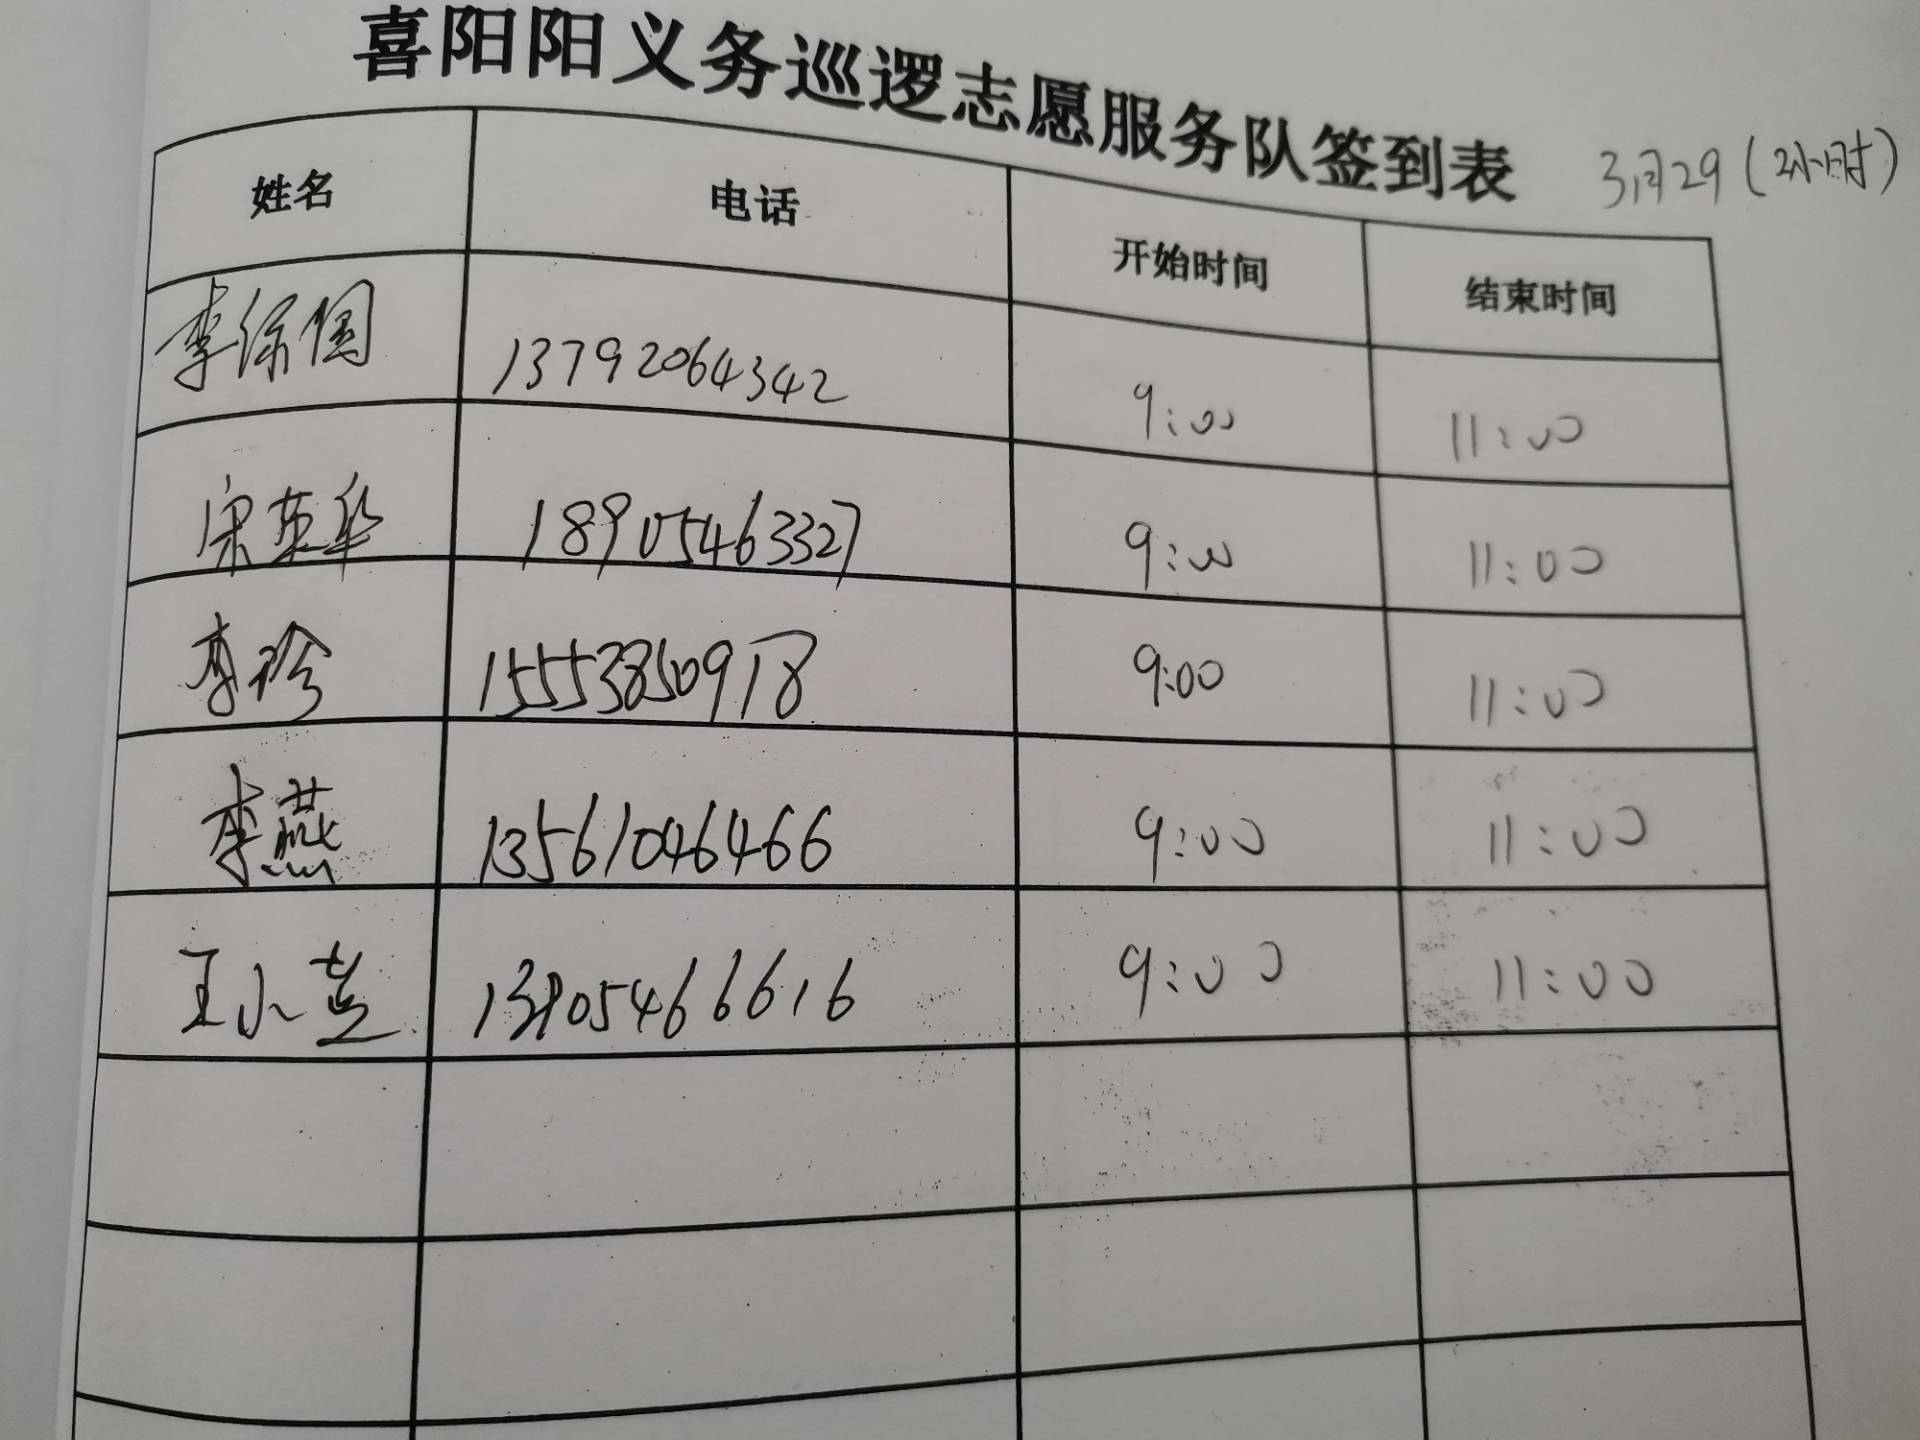 喜阳阳义务巡逻志愿服务队签到表 3月29(2小时)
姓名 电话 开始时间 结束时间
李保国 13792064342 9:00 11:00
宋英华 18905463327 9:00 11:00
李珍 15553850918 9:00 11:00
李燕 13561046466 9:00 11:00
王小芸 13905466616 9:00 11:00